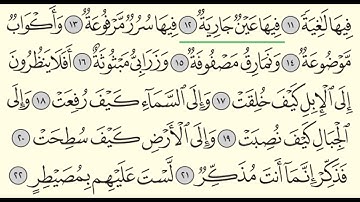 فِيهَا لَٰغِيَةً ١١ فِيهَا عَيْنٌ جَارِيَةٌ ١٢ فِيهَا سُرُرٌ مَّرْفُوعَةٌ ١٣ وَأَكْوَابٌ
مَّوْضُوعَةٌ ١٤ وَنَمَارِقُ مَصْفُوفَةٌ ١٥ وَزَرَابِيُّ مَبْثُوثَةٌ ١٦ أَفَلَا يَنظُرُونَ
إِلَى الْإِبِلِ كَيْفَ خُلِقَتْ ١٧ وَإِلَى السَّمَاءِ كَيْفَ رُفِعَتْ ١٨ وَإِلَى
الْجِبَالِ كَيْفَ نُصِبَتْ ١٩ وَإِلَى الْأَرْضِ كَيْفَ سُطِحَتْ ٢٠
فَذَكِّرْ إِنَّمَا أَنتَ مُذَكِّرٌ ٢١ لَّسْتَ عَلَيْهِم بِمُصَيْطِرٍ ٢٢